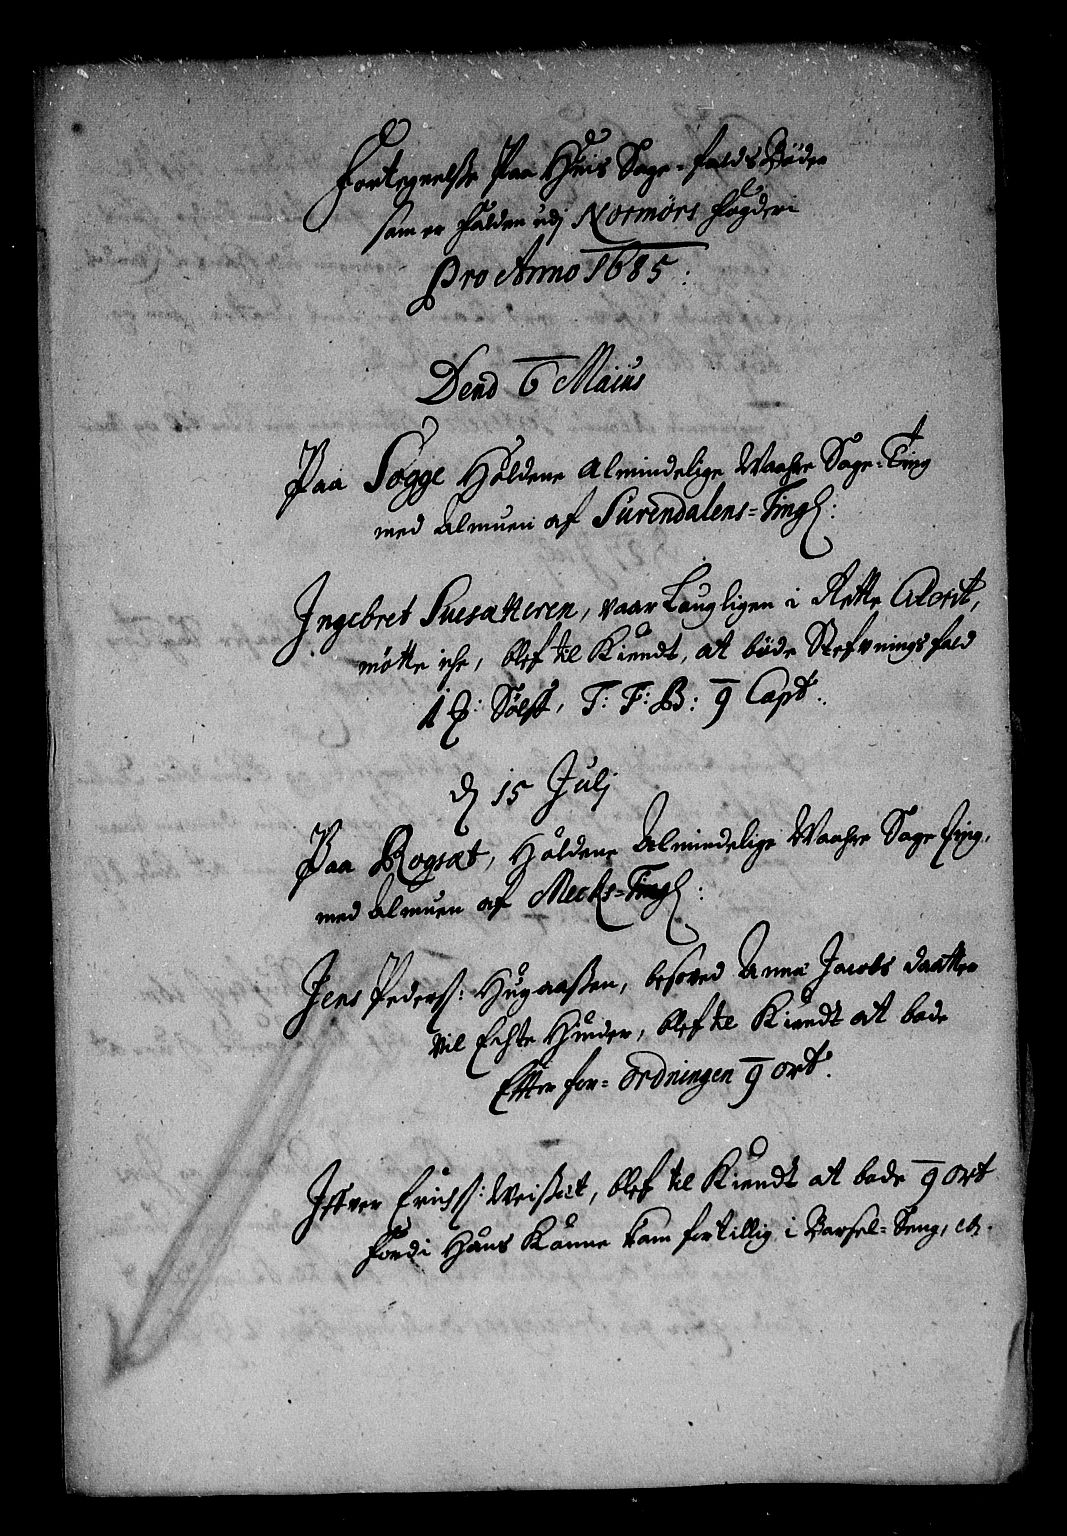 Fortegnelsse Paa Huis Sage-falds Bøder
som er falden udj Normørs fogderi
Pro Anno 1685.
Dend 6 Maius
Paa Søgge Holdene Almindelige Waahre Sage-Ting
med Almuen af Surendalens-Tingl:
Ingebret Suesætteren, vaar Lauglige i Rette Citerit,
møtte iche, blef til Kiendt, at bøde Stefvnings fald
1 Sølf, T: F: B: 9 Capt:
d 15 Julj
Paa Rogsæt, Holdene Almindelige Waahre Sage Ting,
med Almuen af Mechs-Tingl:
Jens Peders: Hugaaßen, besoved Anne Jacobs daatter
vil Echte Hinder, blef til Kiendt at bøde
Efter for-ordningen 9 ort.
Iffver Erichs: Weisæt, blef til Kiendt at bøde 9 ort
fordi Hans Konne kom for tillig i Barsel-Seng, etc.